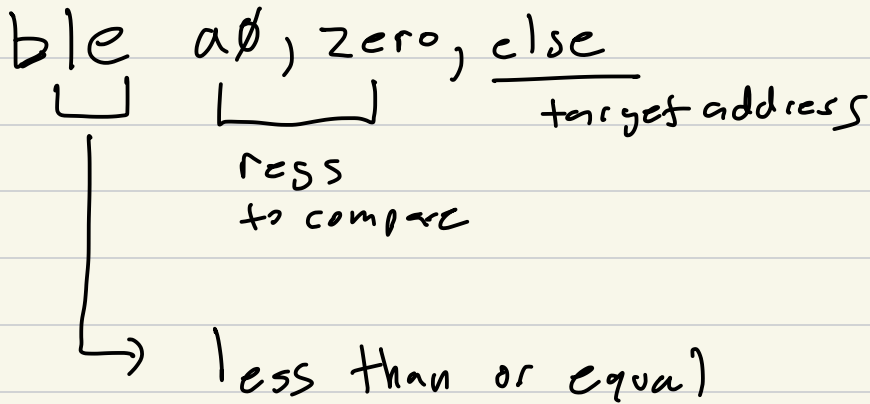 ble a0, zero, else
target address
regs
to compare
less than or equal